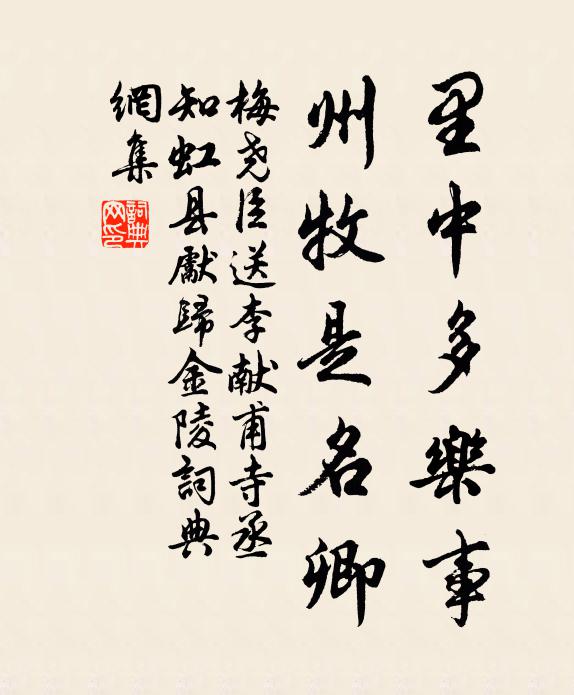 里中多樂事
州牧是名卿
梅尧臣送李献甫寺丞
知虹县處歸金陵詞典
網集
詞典网印